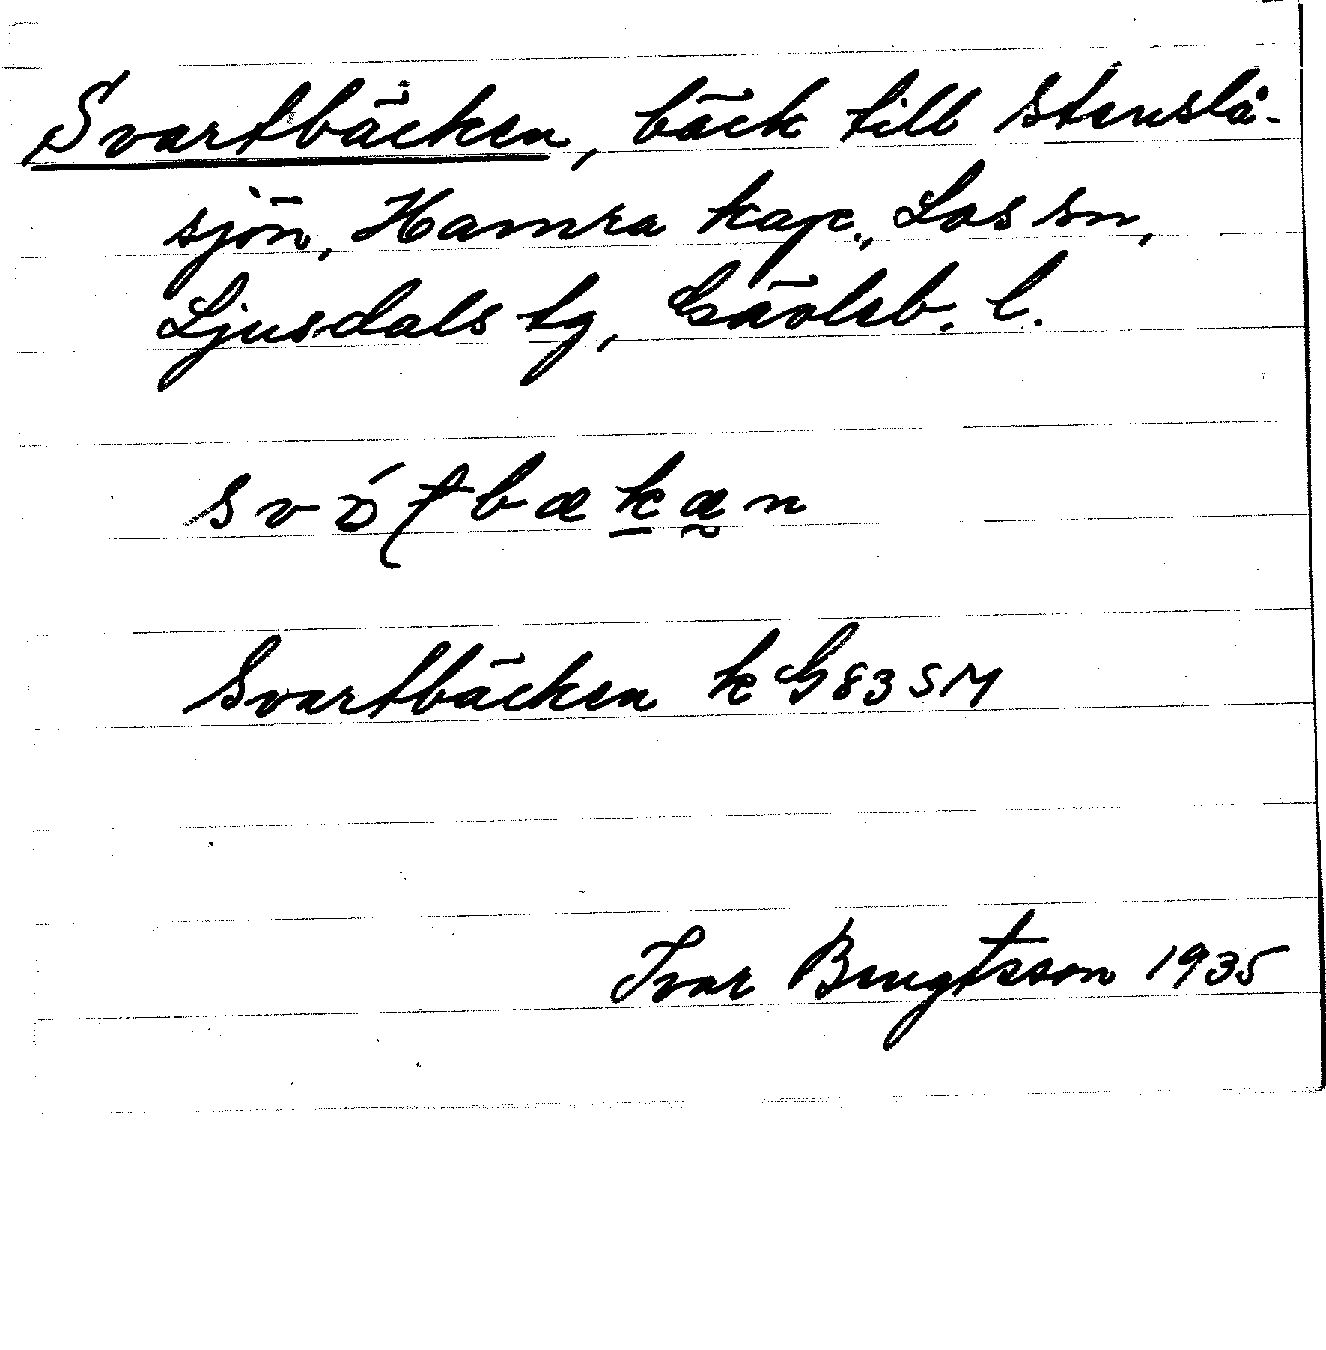 Svartbäcken, bäck till Stenslå-
sjön, Hamra kap., Los sn,
Ljusdals tg, Gävleb. l.
svɔ́ƭbækæ̰n
Svartbäcken k G 83 SM
Ivar Bengtsson 1935